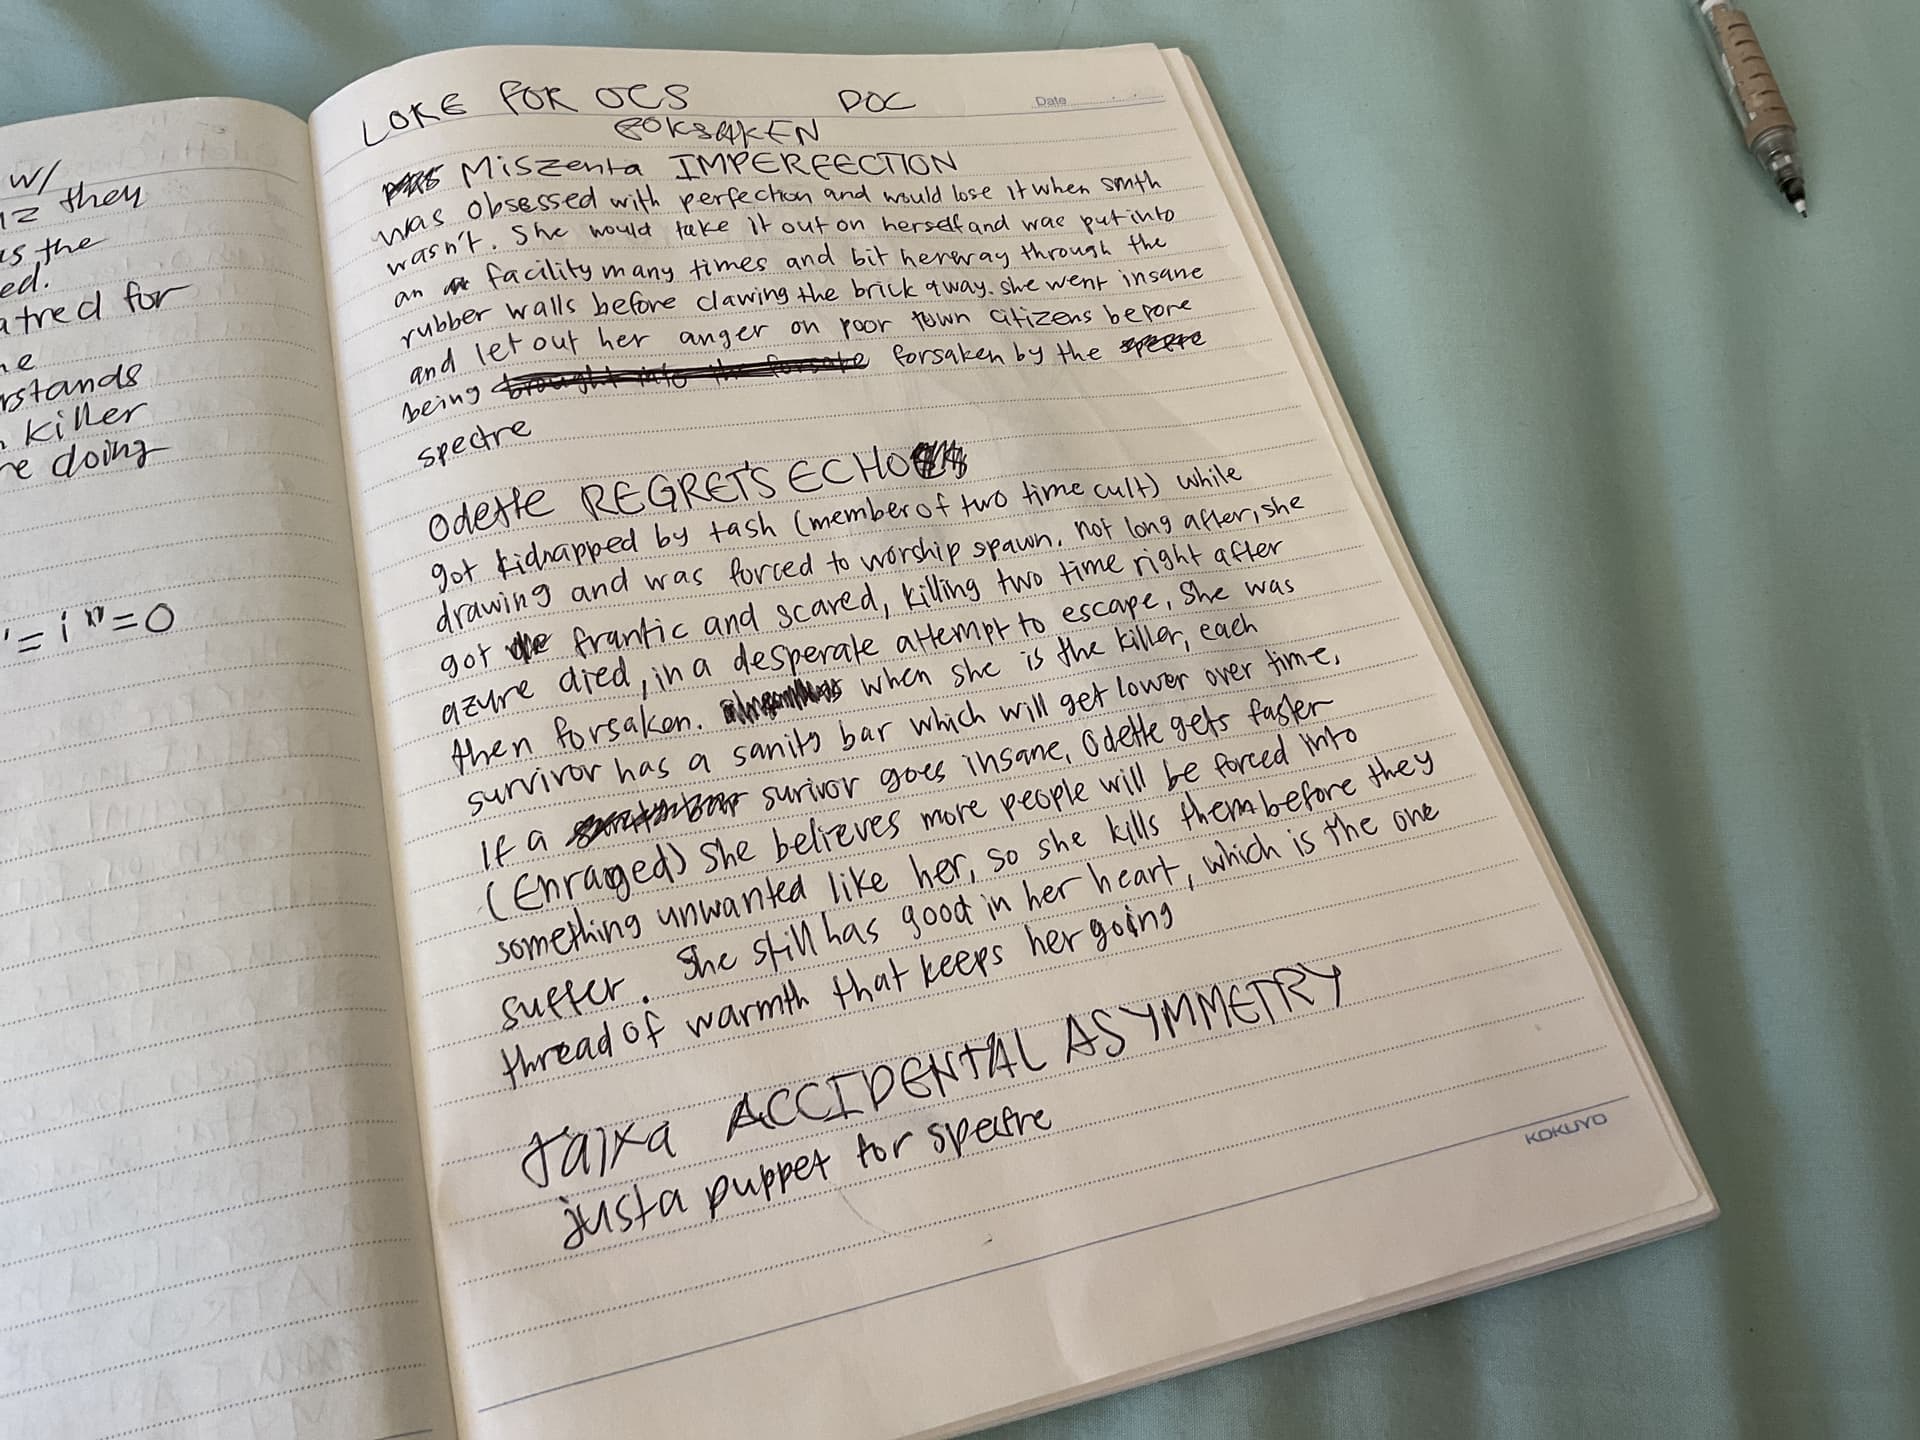 w/
they
as the
ed.
atred for
ne
rstands
killer
re doing
=i"=0
LORE FOR OCS DOC
Date
FORSAKEN
Miszenta IMPERFECTION
was obsessed with perfection and would lose it when smth
wasn't. She would take it out on herself and was put into
an facility many times and bit her way through the
rubber walls before clawing the brick away. she went insane
and let out her anger on poor town citizens before
being brought into the forsake forsaken by the spectre
spectre
Odette REGRET'S ECHO
got kidnapped by tash (member of two time cult) while
drawing and was forced to worship spawn. not long after, she
got frantic and scared, killing two time right after
azure died, in a desperate attempt to escape, She was
then forsaken. when she is the killer, each
survivor has a sanity bar which will get lower over time.
If a surivor goes insane, Odette gets faster
(Enraged) She believes more people will be forced into
something unwanted like her, so she kills them before they
suffer. She still has good in her heart, which is the one
thread of warmth that keeps her going
Jaixa ACCIDENTAL ASYMMETRY
just a puppet for spectre
KOKUYO